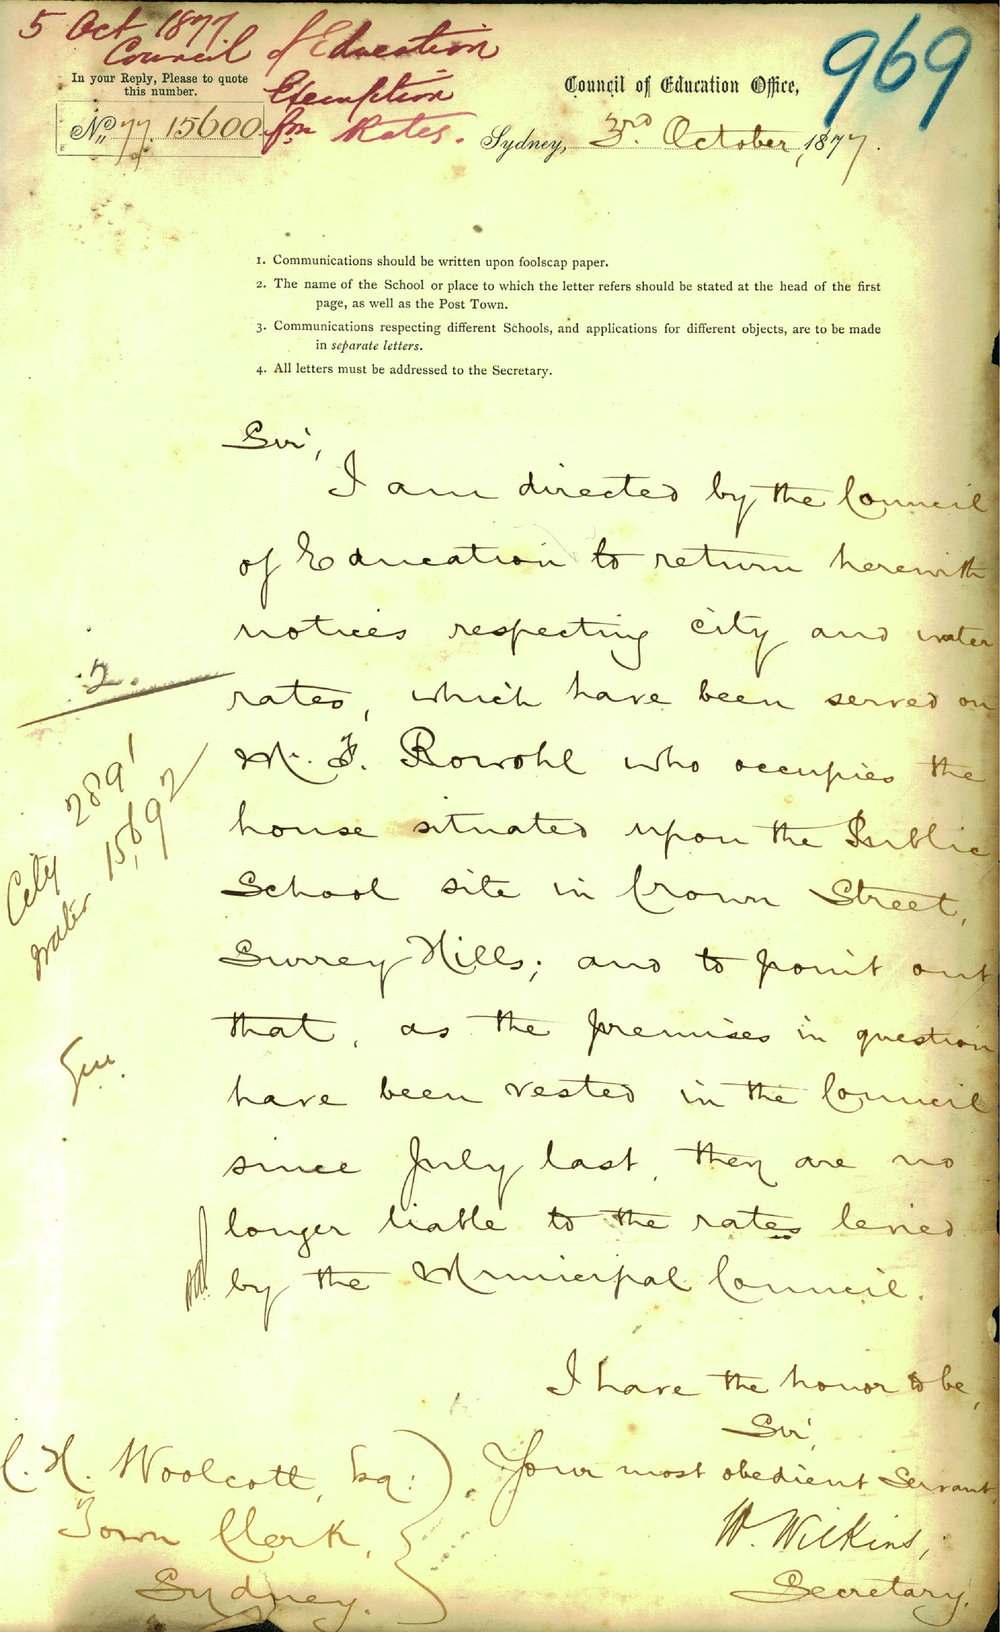 5 Oct 1877
Council of Education
Exemption
from Rates.
969
In your Reply, Please to quote
this number.
No. 77. 15600
Council of Education Office,
Sydney, 3rd October, 1877.
1. Communications should be written upon foolscap paper.
2. The name of the School or place to which the letter refers should be stated at the head of the first
page, as well as the Post Town.
3. Communications respecting different Schools, and applications for different objects, are to be made
in separate letters.
4. All letters must be addressed to the Secretary.
Sir,
I am directed by the Council
of Education to return herewith
notices respecting city and water
rates, which have been served on
Mr. F. Rowohl who occupies the
house situated upon the Public
School site in Crown Street,
Surrey Hills; and to point out
that, as the premises in question
have been vested in the Council
since July last, they are no
longer liable to the rates levied
by the Municipal Council.
2.
City 2891
Water 15,692
I have the honor to be,
Sir,
Your most obedient Servant,
W. Wilkins,
Secretary.
C. H. Woolcott, Esq:
Town Clerk,
Sydney.